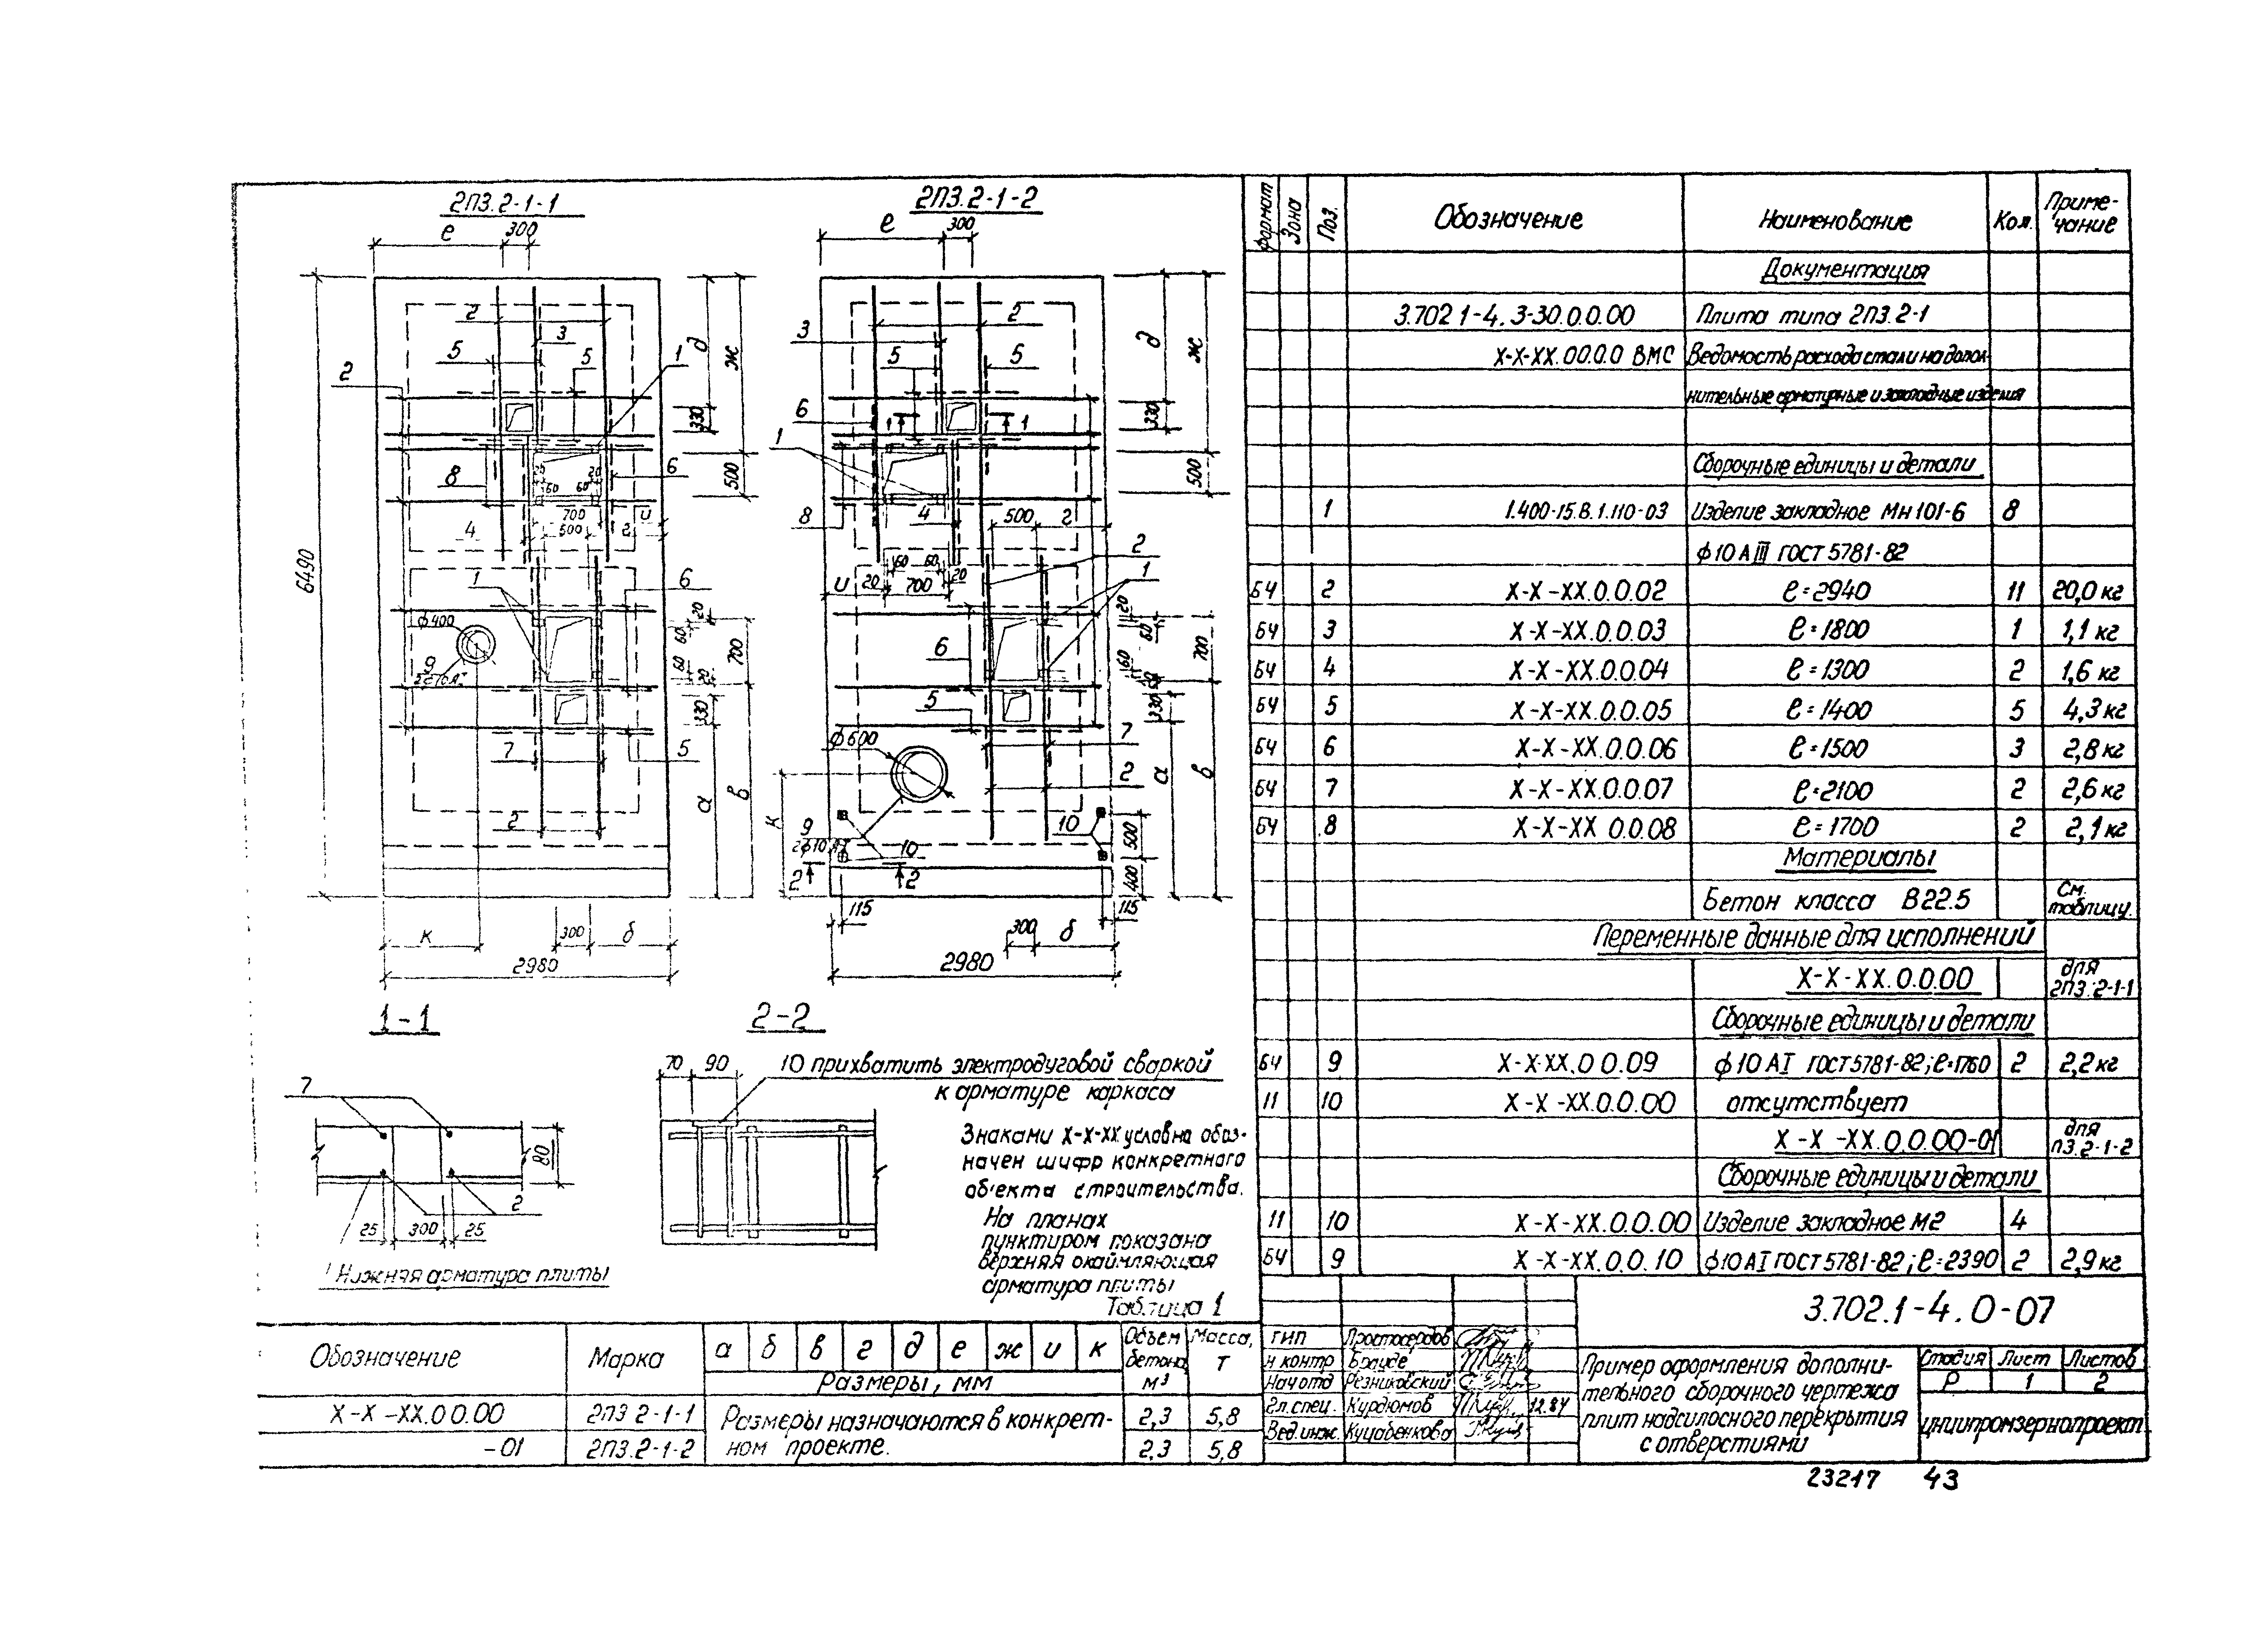 2ПЗ.2-1-1
е 300
6490
2 3 5 5 1 2
д ж 330 500
8 6 20 20 60 60
700 500 4 и г
1 6 ф400 9
20 60 60 20 700 330
7 5 а в 2
к 300 б
2980
2ПЗ.2-1-2
е 300
3 2 5 5 6 1 1 1
д ж 330 500
8 4 500 г 2 1
60 60 и 20 700 20
20 60 60 700 330
6 5 7 2 а в
ф600
к 9 10 10 500 400
2 2
115 115
300 б
2980
1-1
7
80
25 300 25 2
Нижняя арматура плиты
2-2
70 90
10 прихватить электродуговой сваркой
к арматуре каркаса
Знаками Х-Х-ХХ условна обоз-
начен шифр конкретного
объекта строительства.
На планах
пунктиром показана
верхняя окаймляющая
арматура плиты
Таблица 1
Обозначение Марка а б в г д е ж и к Объем бетона, м³ Масса, т
Размеры, мм
Х-Х-ХХ.0 0.00 2ПЗ 2-1-1 Размеры назначаются в конкрет- 2,3 5,8
-01 2ПЗ.2-1-2 ном проекте. 2,3 5,8
формат Зона Поз. Обозначение Наименование Кол. Приме-
чание
Документация
3.702 1-4.3-30.0.0.00 Плита типа 2ПЗ.2-1
Х-Х-ХХ.00.0.0 ВМС Ведомость расхода стали на допол-
нительные арматурные и закладные изделия
Сборочные единицы и детали
1 1.400-15.В.1.110-03 Изделие закладное Мн101-6 8
ф10АIII ГОСТ 5781-82
БЧ 2 Х-Х-ХХ.0.0.02 ℓ=2940 11 20,0 кг
БЧ 3 Х-Х-ХХ.0.0.03 ℓ=1800 1 1,1 кг
БЧ 4 Х-Х-ХХ.0.0.04 ℓ=1300 2 1,6 кг
БЧ 5 Х-Х-ХХ.0.0.05 ℓ=1400 5 4,3 кг
БЧ 6 Х-Х-ХХ.0.0.06 ℓ=1500 3 2,8 кг
БЧ 7 Х-Х-ХХ.0.0.07 ℓ=2100 2 2,6 кг
БЧ 8 Х-Х-ХХ 0.0.08 ℓ=1700 2 2,1 кг
Материалы
Бетон класса В22.5 См. таблицу.
Переменные данные для исполнений
Х-Х-ХХ.0.0.00 для
2ПЗ.2-1-1
Сборочные единицы и детали
БЧ 9 Х-Х-ХХ.0 0.09 ф10АI ГОСТ 5781-82; ℓ=1760 2 2,2 кг
11 10 Х-Х-ХХ.0.0.00 отсутствует
Х-Х-ХХ.0.0.00-01 для
ПЗ.2-1-2
Сборочные единицы и детали
11 10 Х-Х-ХХ.0.0.00 Изделие закладное М2 4
БЧ 9 Х-Х-ХХ.0.0.10 ф10АI ГОСТ 5781-82; ℓ=2390 2 2,9 кг
3.702.1-4.0-07
ГИП Простосердов
Н контр Брауде
Нач отд Резниковский
Гл.спец. Курдюмов 12.84
Вед.инж. Куцабенкова
Пример оформления дополни-
тельного сборочного чертежа
плит надсилосного перекрытия
с отверстиями
Стадия Лист Листов
Р 1 2
ЦНИИпромзернопроект
23217 43